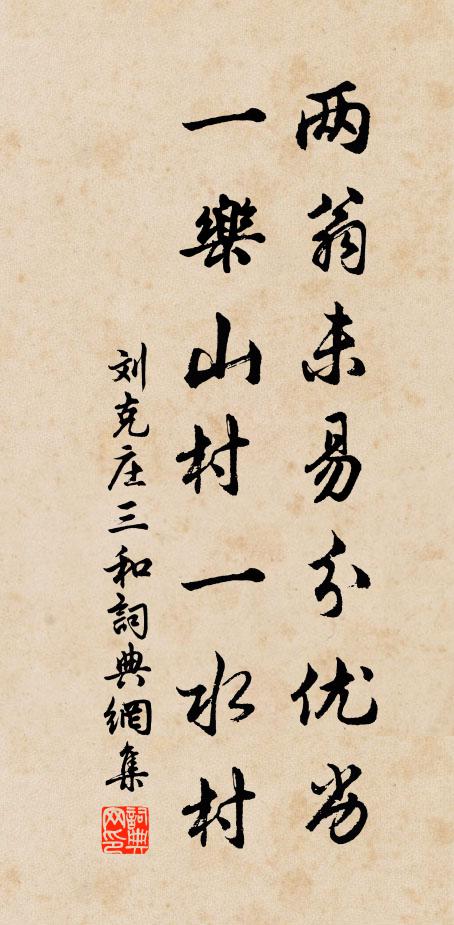 两翁未易分优劣
一樂山村一水村
刘克庄三和詞典網集
詞典
网印